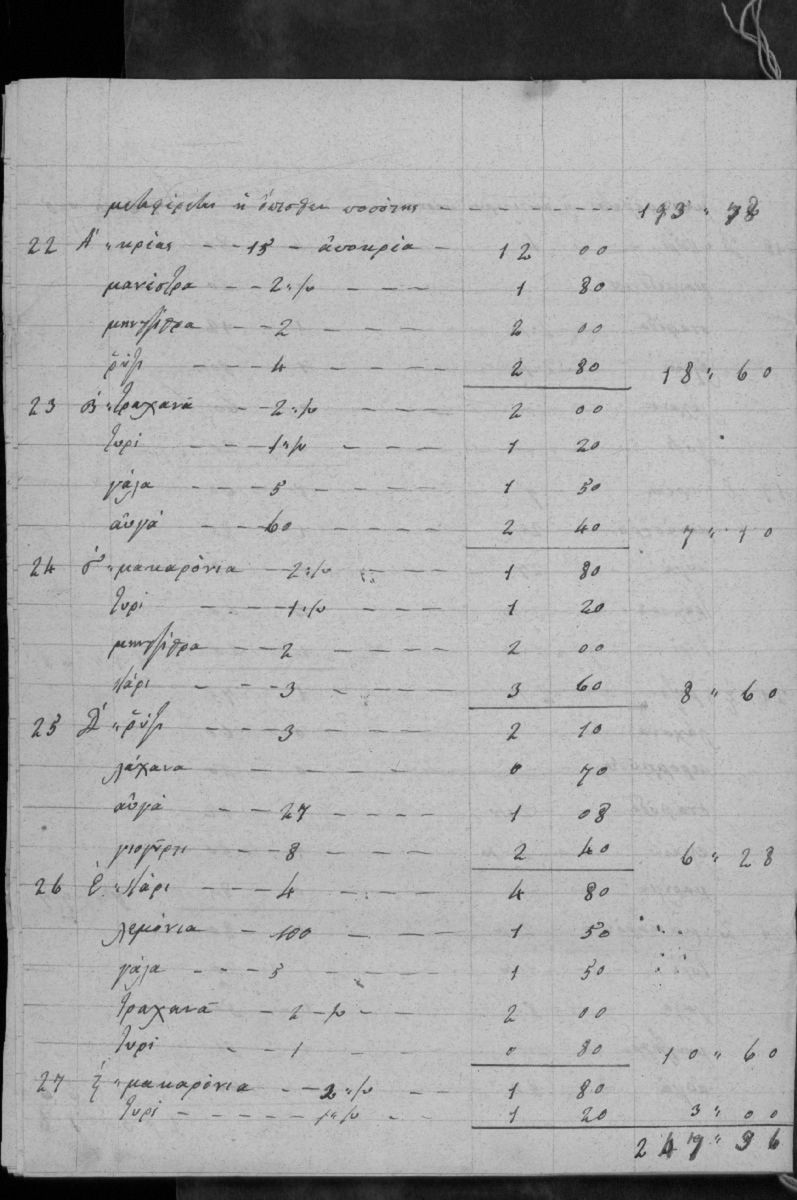 μεταφέρεται ἡ ὄπισθεν ποσότης - - - 193 " 78
22 Α' " κρέας - - 15 - ἀποκρέα - 12 00
μανέστρα - - 2 "/2 - - - 1 80
μηντζίθρα - - 2 - - - - 2 00
ῥύζι - - 4 - - - 2 80 18 " 60
23 Β " τραχανᾶ - - 2 "/2 - - - 2 00
τυρί - - - 1 "/2 - - - 1 20
γάλα - - - 5 - - - - 1 50
αὐγά - - 60 - - - - 2 40 7 " 10
24 Γ " μακαρόνια - 2 "/2 1 80
τυρί - - - 1 "/2 - - - 1 20
μηντζίθρα - - 2 - - - 2 00
ψάρι - - - 3 - - - 3 60 8 " 60
25 Δ " ῥύζι - - - 3 - - - 2 10
λάχανα - - - - - - 0 70
αὐγά - - - 27 - - - - 1 08
γιογύρτι - - 8 - - - 2 40 6 " 28
26 Ε " ψάρι - - 4 - - - 4 80
λεμόνια - 100 - - - 1 50
γάλα - - - 5 - - - 1 50
τραχανᾶ - - 2 "/2 - - 2 00
τυρί - 1 - - 0 80 10 " 60
27 " μακαρόνια - - 2 "/2 - - 1 80
τυρί - - - - 1 "/2 - - 1 20 3 " 00
247 " 96